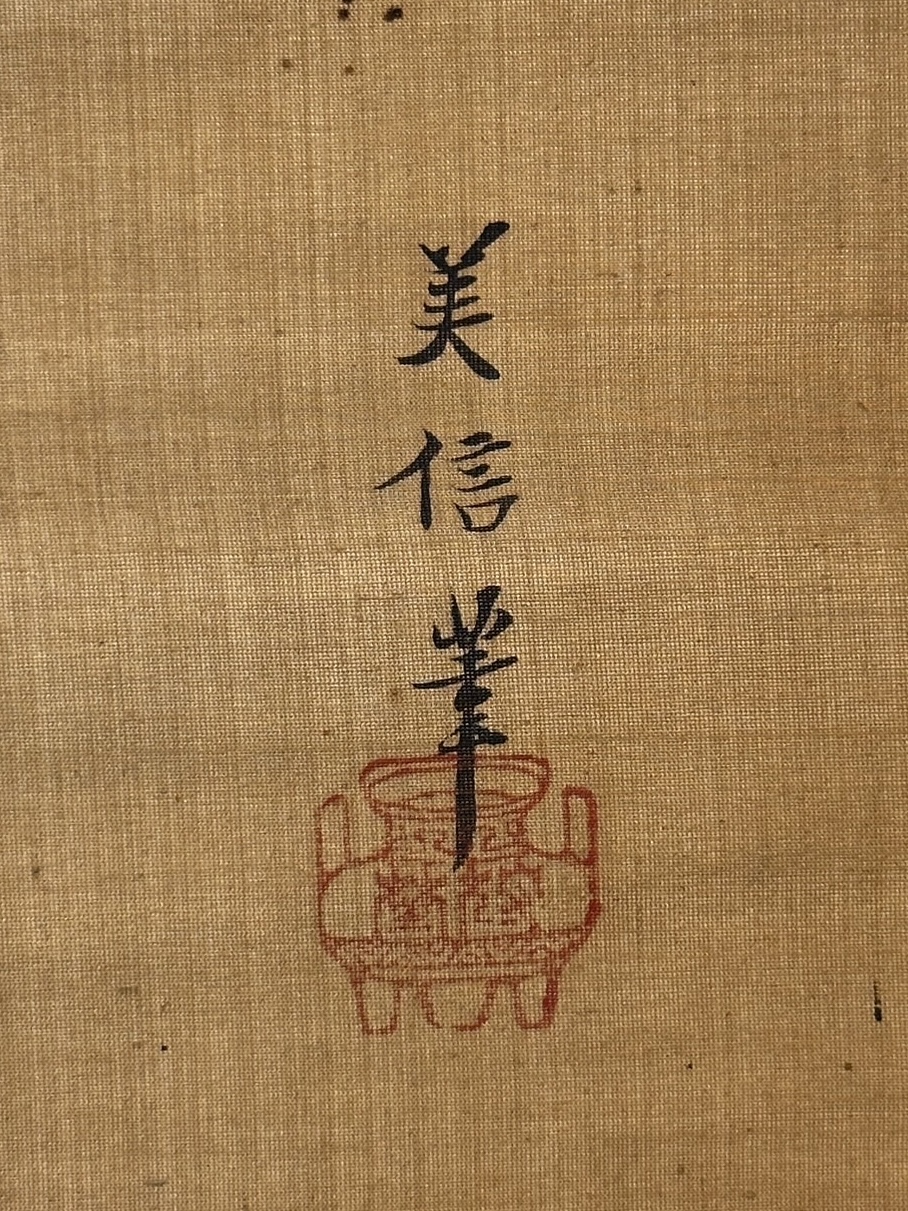 美信筆